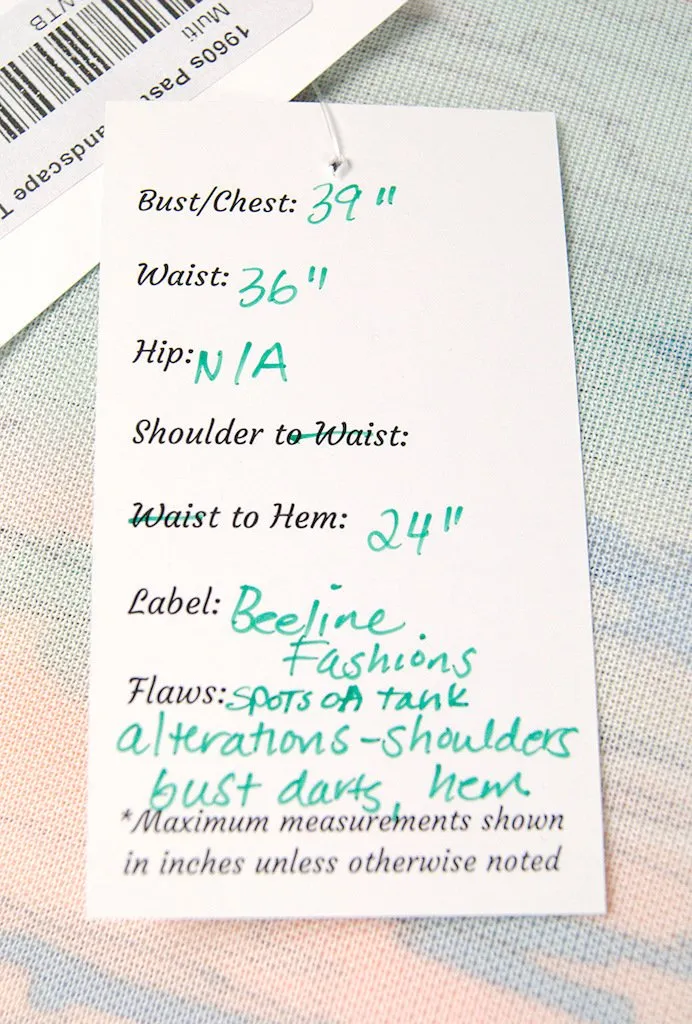 WTB
Multi
1960s Past
andscape T
Bust/Chest: 39"
Waist: 36"
Hip: N/A
Shoulder to Waist:
Waist to Hem: 24"
Label: Beeline
Fashions
Flaws: SPOTS ON tank
alterations - shoulders
bust darts, hem
*Maximum measurements shown
in inches unless otherwise noted